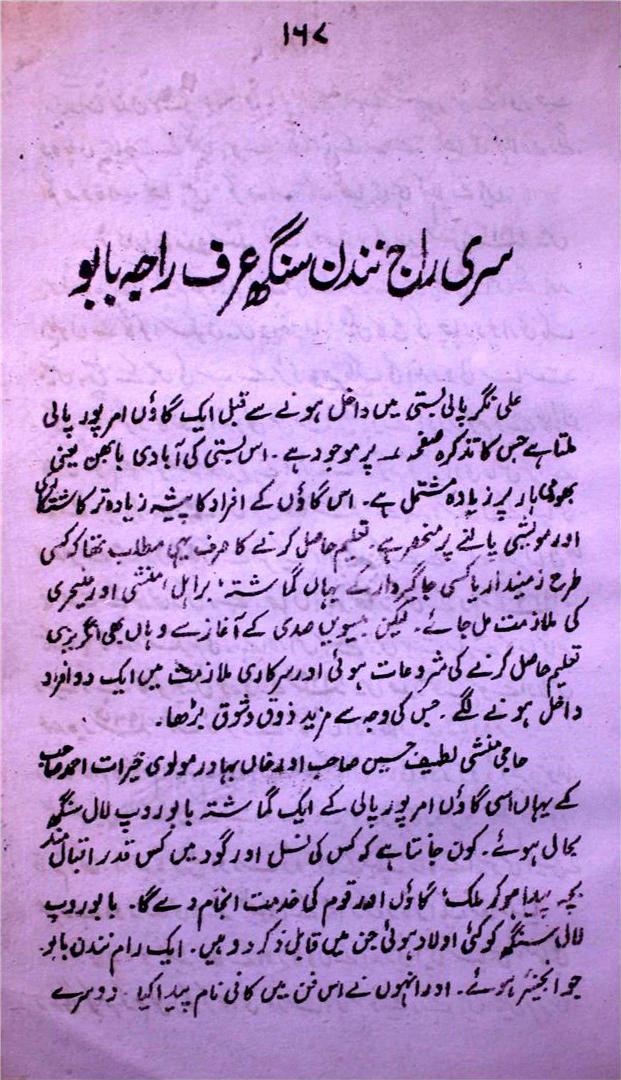 ۱۶۷
سری راج نندن سنگھ عرف راجہ بابو
علی نگر پالی بستی میں داخل ہونے سے قبل ایک گاؤں امر پور پالی
ملتا ہے جس کا تذکرہ صفحہ ۔۔ پر موجود ہے۔ اس بستی کی آبادی بابھن یعنی
بھومی ہار پر زیادہ مشتمل ہے۔ اس گاؤں کے افراد کا پیشہ زیادہ تر کاشتکاری
اور مویشی پالنے پر منحصر ہے۔ تعلیم حاصل کرنے کا صرف یہی مطلب تھا کہ کسی
طرح زمیندار یا کسی جاگیردار کے یہاں گماشتہ، براہل، منشی اور منیجری
کی ملازمت مل جائے۔ لیکن بیسویں صدی کے آغاز سے وہاں بھی انگریزی
تعلیم حاصل کرنے کی شروعات ہوئی اور سرکاری ملازمت میں ایک دو افراد
داخل ہونے لگے۔ جس کی وجہ سے مزید ذوق و شوق بڑھا۔
حاجی منشی لطیف حسین صاحب اور خاں بہادر مولوی خیرات احمد صاحب
کے یہاں اسی گاؤں امر پور پالی کے ایک گماشتہ بابو روپ لال سنگھ
بحال ہوئے۔ کون جانتا ہے کہ کس کی نسل اور گود میں کس قدر اقبال مند
بچہ پیدا ہو کر ملک، گاؤں اور قوم کی خدمت انجام دے گا۔ بابو روپ
لال سنگھ کو کئی اولاد ہوئی جن میں قابل ذکر دو ہیں۔ ایک رام نندن بابو
جو انجینئر ہوئے۔ اور انہوں نے اس فن میں کافی نام پیدا کیا۔ دوسرے